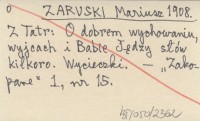 o ZARUSKI Mariusz 1908.
Z Tatr: O dobrem wychowaniu,
wyjcach i Babie Jędzy słów
kilkoro. Wycieczki. — „Zako-
pane" 1, nr 15.